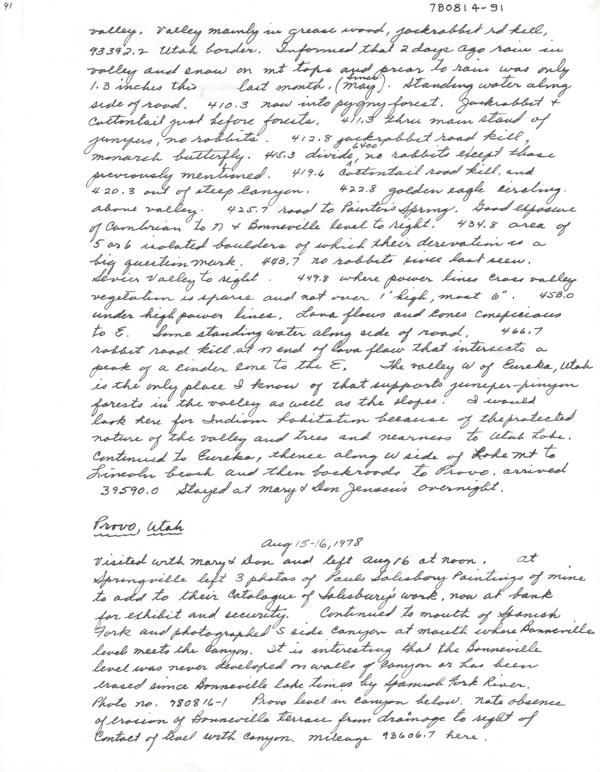 91
780814-91
valley. Valley mainly in grease wood, jackrabbit rd kill,
93392.2 Utah border. Informed that 2 days ago rain in
valley and snow on mt tops and prior to rain was only
1.3 inches the last month. (since May). Standing water along
side of road. 410.3 now into pygmy forest. Jackrabbit &
Cottontail just before forests. 411.3 thru main stand of
junipers, no rabbits. 412.8 jackrabbit road kill,
monarch butterfly. 415.3 divide, 6400' no rabbits except those
previously mentioned. 419.6 Cottontail road kill, and
420.3 out of steep canyon. 422.8 golden eagle circling
above valley. 425.7 road to Painter Spring. Good exposure
of Cambrian to N & Bonneville level to right. 434.8 area of
5 or 6 isolated boulders of which their derevation is a
big question mark. 443.7 no rabbits since last seen.
Sevier Valley to right. 449.8 where power lines cross valley
vegetation is sparse and not over 1' high, most 6". 458.0
under high power lines. Lava flows and cones conspicious
to E. Some standing water along side of road. 466.7
rabbit road kill at N end of lava flow that intersects a
peak of a cinder cone to the E. The valley W of Eureka, Utah
is the only place I know of that supports juniper-pinyon
forests in the valley as well as the slopes. I would
look here for Indian habitation because of the protected
nature of the valley and trees and nearness to Utah Lake.
Continued to Eureka, thence along W side of Lake Mt to
Lincoln beach and then backroads to Provo. arrived
39590.0 Stayed at Mary & Don Jensen's overnight.
Provo, Utah
Aug 15-16, 1978
Visited with Mary & Don and left Aug 16 at noon. At
Springville left 3 photos of Pauls Salisbury Paintings of mine
to add to their Catalogue of Salisbury's work, now at bank
for exhibit and security. Continued to mouth of Spanish
Fork and photographed S side canyon at mouth where Bonneville
level meets the Canyon. It is interesting that the Bonneville
level was never developed on walls of Canyon or has been
erased since Bonneville lake times by Spanish Fork River.
Photo no. 780816-1 Provo level in canyon below. Note absence
of erosion of Bonneville terrace from drainage to right of
Contact of level with Canyon. mileage 93606.7 here.